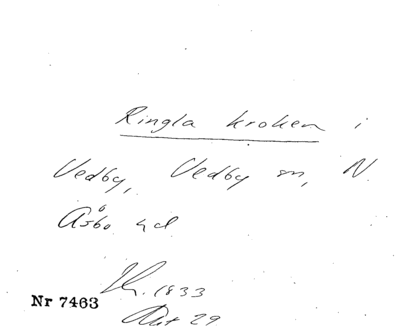 Ringla kroken i
Vedby, Vedby sn, N.
Åsbo hd
1833
Nr 7463
Akt 29